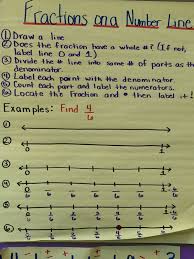 Fractions on a Number Line
① Draw a line
② Does the fraction have a whole #? (If not,
label line 0 and 1)
③ Divide the # line into same # of parts as the
denominator.
④ Label each point with the denominator.
⑤ Count each part and label the numerators.
⑥ Locate the fraction and • then label it!
Examples: Find 4/6
①
②
0 1
③
0 1
④
0 6 6 6 6 6 1
⑤
0 1/6 2/6 3/6 4/6 5/6 1
⑥
0 1/6 2/6 3/6 4/6 5/6 1